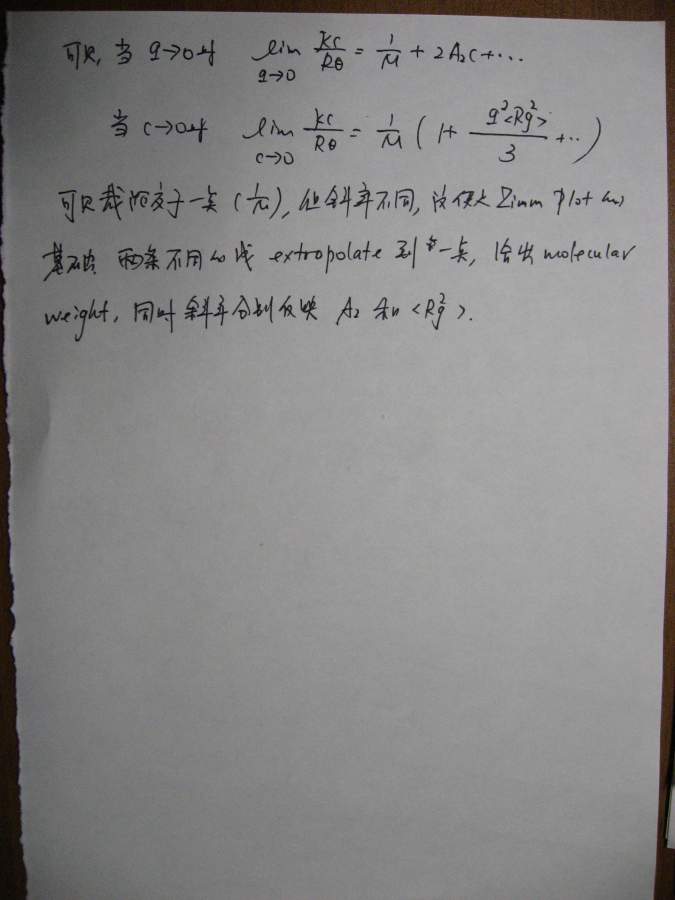 可见, 当 q→0时 lim q→0 Kc/Rθ = 1/M + 2A₂c + ...
当 c→0时 lim c→0 Kc/Rθ = 1/M (1 + q²<Rg²>/3 + ...)
可见截距交于一点 (1/M), 但斜率不同, 这便是 Zimm Plot 的
基础. 两条不同的线 extropolate 到 一点, 给出 molecular
weight, 同时斜率分别反映 A₂ 和 <Rg²>.